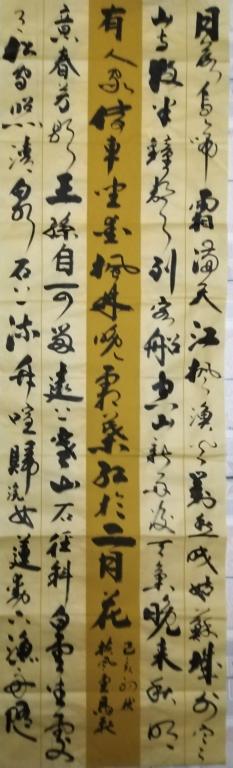 月落烏啼霜滿天江楓漁火對愁眠姑蘇城外寒
山寺夜半鐘聲到客船空山新雨後天氣晚來秋明
月松間照清泉石上流竹喧歸浣女蓮動下漁舟隨
意春芳歇王孫自可留遠上寒山石徑斜白雲生處
有人家停車坐愛楓林晚霜葉紅於二月花
己亥初伏
扶風堂馬